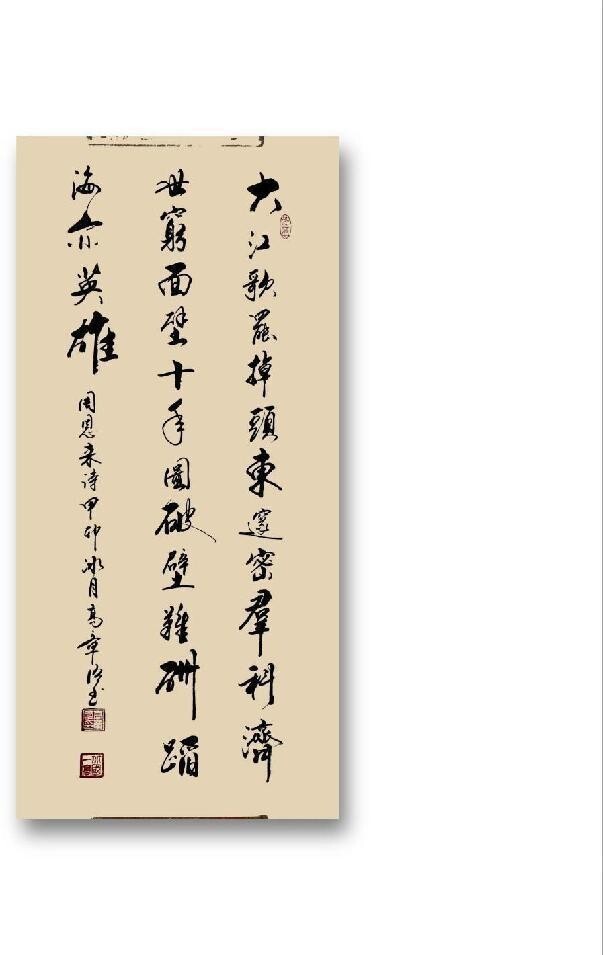 大江歌罷掉頭東邃密羣科濟
世窮面壁十年圖破壁難酬蹈
海亦英雄
周恩来诗甲卯冰月高章